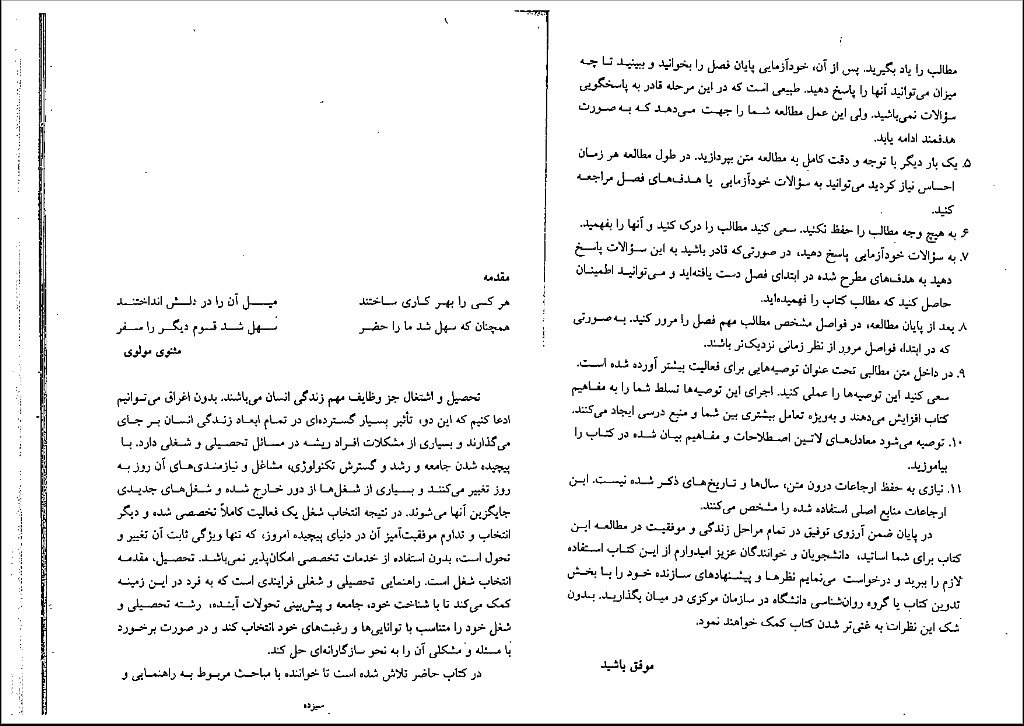 مطالب را یاد بگیرید. پس از آن، خودآزمایی پایان فصل را بخوانید و ببینید تا چه
میزان می‌توانید آنها را پاسخ دهید. طبیعی است که در این مرحله قادر به پاسخگویی
سؤالات نمی‌باشید. ولی این عمل مطالعه شما را جهت می‌دهد که به صورت
هدفمند ادامه یابد.
۵. یک بار دیگر با توجه و دقت کامل به مطالعه متن بپردازید. در طول مطالعه هر زمان
احساس نیاز کردید می‌توانید به سؤالات خودآزمایی یا هدف‌های فصل مراجعه
کنید.
۶. به هیچ وجه مطالب را حفظ نکنید. سعی کنید مطالب را درک کنید و آنها را بفهمید.
۷. به سؤالات خودآزمایی پاسخ دهید، در صورتی‌که قادر باشید به این سؤالات پاسخ
دهید به هدف‌های مطرح شده در ابتدای فصل دست یافته‌اید و می‌توانید اطمینان
حاصل کنید که مطالب کتاب را فهمیده‌اید.
۸. بعد از پایان مطالعه، در فواصل مشخص مطالب مهم فصل را مرور کنید. به‌صورتی
که در ابتدا، فواصل مرور از نظر زمانی نزدیک‌تر باشند.
۹. در داخل متن مطالبی تحت عنوان توصیه‌هایی برای فعالیت بیشتر آورده شده است.
سعی کنید این توصیه‌ها را عملی کنید. اجرای این توصیه‌ها تسلط شما را به مفاهیم
کتاب افزایش می‌دهند و به‌ویژه تعامل بیشتری بین شما و منبع درسی ایجاد می‌کنند.
۱۰. توصیه می‌شود معادل‌های لاتین اصطلاحات و مفاهیم بیان شده در کتاب را
بیاموزید.
۱۱. نیازی به حفظ ارجاعات درون متن، سال‌ها و تاریخ‌های ذکر شده نیست. این
ارجاعات منابع اصلی استفاده شده را مشخص می‌کنند.
در پایان ضمن آرزوی توفیق در تمام مراحل زندگی و موفقیت در مطالعه این
کتاب برای شما اساتید، دانشجویان و خوانندگان عزیز امیدوارم از این کتاب استفاده
لازم را ببرید و درخواست می‌نمایم نظرها و پیشنهادهای سازنده خود را با بخش
تدوین کتاب یا گروه روان‌شناسی دانشگاه در سازمان مرکزی در میان بگذارید. بدون
شک این نظرات به غنی‌تر شدن کتاب کمک خواهند نمود.
موفق باشید
مقدمه
هر کسی را بهر کاری ساختند میـــل آن را در دلش انداختند
همچنان که سهل شد ما را حضر سهل شد قوم دیگر را سفر
مثنوی مولوی
تحصیل و اشتغال جز وظایف مهم زندگی انسان می‌باشند. بدون اغراق می‌توانیم
ادعا کنیم که این دو، تأثیر بسیار گسترده‌ای در تمام ابعاد زندگی انسان بر جای
می‌گذارند و بسیاری از مشکلات افراد ریشه در مسائل تحصیلی و شغلی دارد. با
پیچیده شدن جامعه و رشد و گسترش تکنولوژی، مشاغل و نیازمندی‌های آن روز به
روز تغییر می‌کنند و بسیاری از شغل‌ها از دور خارج شده و شغل‌های جدیدی
جایگزین آنها می‌شوند. در نتیجه انتخاب شغل یک فعالیت کاملاً تخصصی شده و دیگر
انتخاب و تداوم موفقیت‌آمیز آن در دنیای پیچیده امروز، که تنها ویژگی ثابت آن تغییر و
تحول است، بدون استفاده از خدمات تخصصی امکان‌پذیر نمی‌باشد. تحصیل، مقدمه
انتخاب شغل است. راهنمایی تحصیلی و شغلی فرایندی است که به فرد در این زمینه
کمک می‌کند تا با شناخت خود، جامعه و پیش‌بینی تحولات آینده، رشته تحصیلی و
شغل خود را متناسب با توانایی‌ها و رغبت‌های خود انتخاب کند و در صورت برخورد
با مسئله و مشکلی آن را به نحو سازگارانه‌ای حل کند.
در کتاب حاضر تلاش شده است تا خواننده با مباحث مربوط به راهنمایی و
سیزده